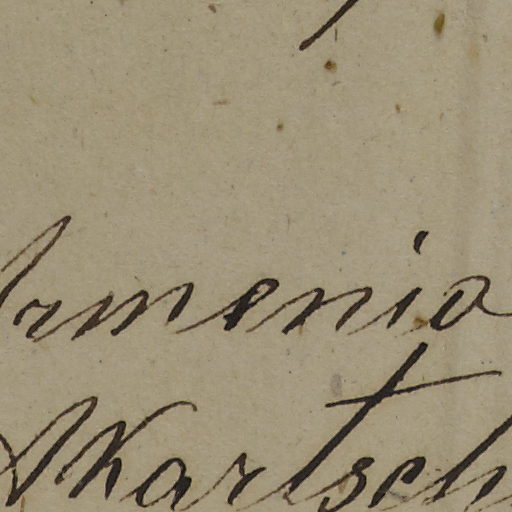 Armenia
Kartsch